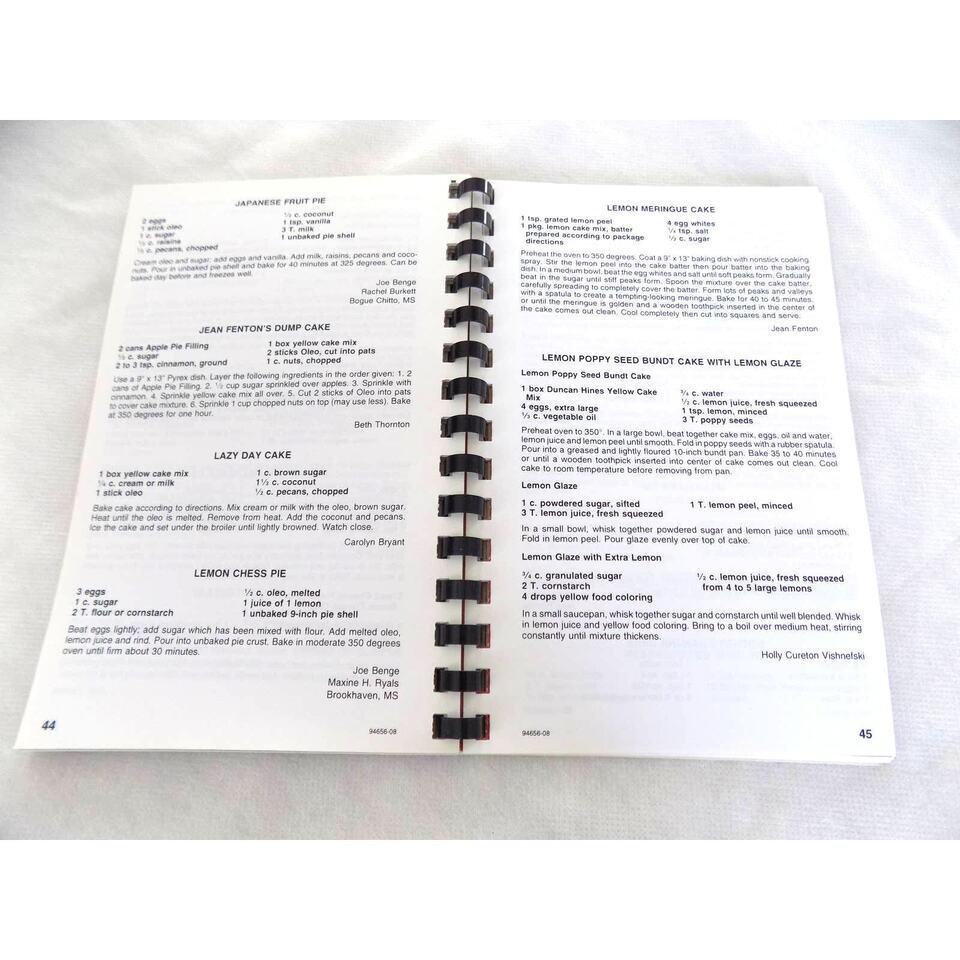 JAPANESE FRUIT PIE
2 eggs
1 stick oleo
1 c. sugar
½ c. raisins
½ c. pecans, chopped
½ c. coconut
1 tsp. vanilla
3 T. milk
1 unbaked pie shell
Cream oleo and sugar; add eggs and vanilla. Add milk, raisins, pecans and coco-
nuts. Pour in unbaked pie shell and bake for 40 minutes at 325 degrees. Can be
baked day before and freezes well.
Joe Benge
Rachel Burkett
Bogue Chitto, MS
JEAN FENTON'S DUMP CAKE
2 cans Apple Pie Filling
½ c. sugar
2 to 3 tsp. cinnamon, ground
1 box yellow cake mix
2 sticks Oleo, cut into pats
1 c. nuts, chopped
Use a 9" x 13" Pyrex dish. Layer the following ingredients in the order given: 1. 2
cans of Apple Pie Filling. 2. ½ cup sugar sprinkled over apples. 3. Sprinkle with
cinnamon. 4. Sprinkle yellow cake mix all over. 5. Cut 2 sticks of Oleo into pats
to cover cake mixture. 6. Sprinkle 1 cup chopped nuts on top (may use less). Bake
at 350 degrees for one hour.
Beth Thornton
LAZY DAY CAKE
1 box yellow cake mix
¼ c. cream or milk
1 stick oleo
1 c. brown sugar
1½ c. coconut
½ c. pecans, chopped
Bake cake according to directions. Mix cream or milk with the oleo, brown sugar.
Heat until the oleo is melted. Remove from heat. Add the coconut and pecans.
Ice the cake and set under the broiler until lightly browned. Watch close.
Carolyn Bryant
LEMON CHESS PIE
3 eggs
1 c. sugar
2 T. flour or cornstarch
½ c. oleo, melted
1 juice of 1 lemon
1 unbaked 9-inch pie shell
Beat eggs lightly; add sugar which has been mixed with flour. Add melted oleo,
lemon juice and rind. Pour into unbaked pie crust. Bake in moderate 350 degrees
oven until firm about 30 minutes.
Joe Benge
Maxine H. Ryals
Brookhaven, MS
44
94656-08
LEMON MERINGUE CAKE
1 tsp. grated lemon peel
1 pkg. lemon cake mix, batter
prepared according to package
directions
4 egg whites
¼ tsp. salt
½ c. sugar
Preheat the oven to 350 degrees. Coat a 9" x 13" baking dish with nonstick cooking
spray. Stir the lemon peel into the cake batter then pour batter into the baking
dish. In a medium bowl, beat the egg whites and salt until soft peaks form. Gradually
beat in the sugar until stiff peaks form. Spoon the mixture over the cake batter,
carefully spreading to completely cover the batter. Form lots of peaks and valleys
with a spatula to create a tempting-looking meringue. Bake for 40 to 45 minutes,
or until the meringue is golden and a wooden toothpick inserted in the center of
the cake comes out clean. Cool completely then cut into squares and serve.
Jean Fenton
LEMON POPPY SEED BUNDT CAKE WITH LEMON GLAZE
Lemon Poppy Seed Bundt Cake
1 box Duncan Hines Yellow Cake
Mix
4 eggs, extra large
⅓ c. vegetable oil
¾ c. water
½ c. lemon juice, fresh squeezed
1 tsp. lemon, minced
3 T. poppy seeds
Preheat oven to 350°. In a large bowl, beat together cake mix, eggs, oil and water,
lemon juice and lemon peel until smooth. Fold in poppy seeds with a rubber spatula.
Pour into a greased and lightly floured 10-inch bundt pan. Bake 35 to 40 minutes
or until a wooden toothpick inserted into center of cake comes out clean. Cool
cake to room temperature before removing from pan.
Lemon Glaze
1 c. powdered sugar, sifted
3 T. lemon juice, fresh squeezed
1 T. lemon peel, minced
In a small bowl, whisk together powdered sugar and lemon juice until smooth.
Fold in lemon peel. Pour glaze evenly over top of cake.
Lemon Glaze with Extra Lemon
¾ c. granulated sugar
2 T. cornstarch
4 drops yellow food coloring
½ c. lemon juice, fresh squeezed
from 4 to 5 large lemons
In a small saucepan, whisk together sugar and cornstarch until well blended. Whisk
in lemon juice and yellow food coloring. Bring to a boil over medium heat, stirring
constantly until mixture thickens.
Holly Cureton Vishnefski
94656-08
45